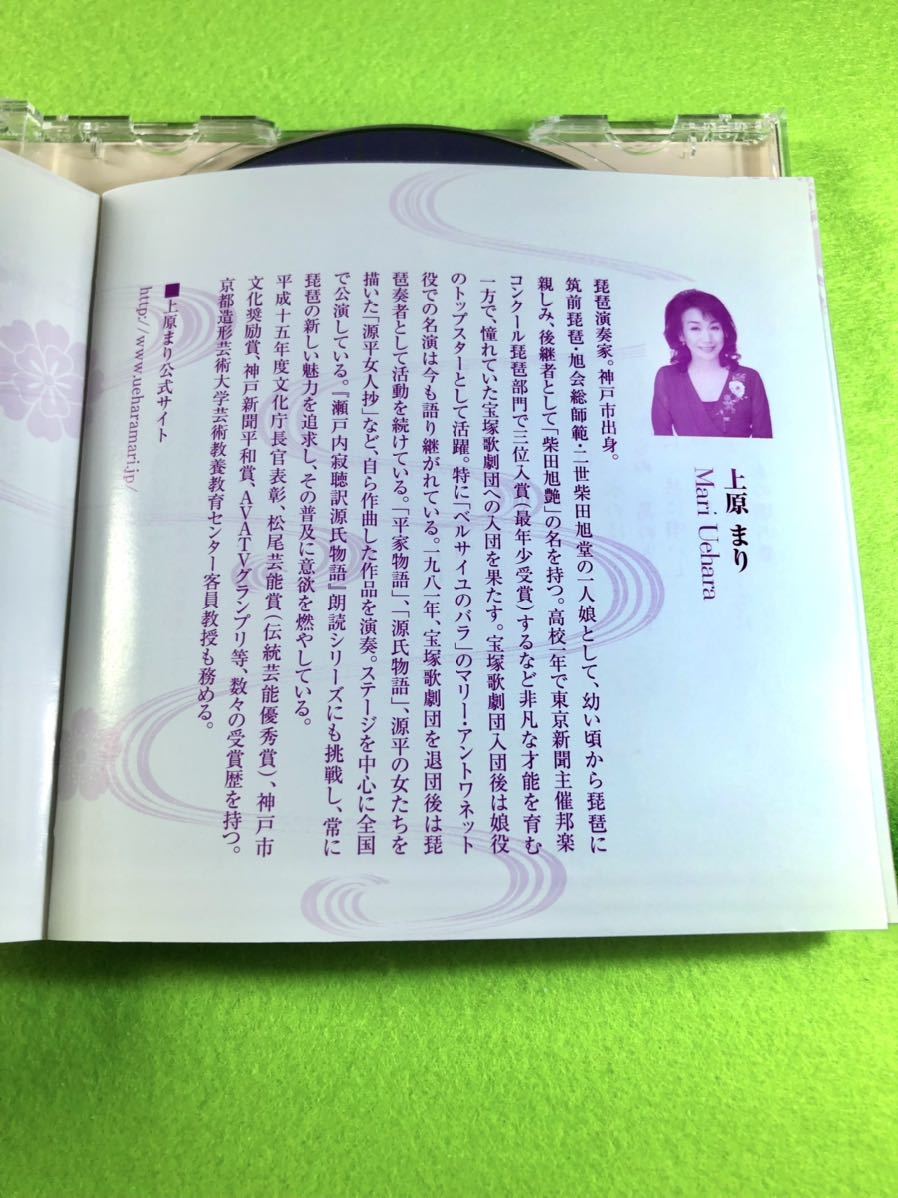 上原 まり
Mari Uehara
琵琶演奏家。神戸市出身。
筑前琵琶・旭会総師範・二世柴田旭堂の一人娘として、幼い頃から琵琶に
親しみ、後継者として「柴田旭艶」の名を持つ。高校一年で東京新聞主催邦楽
コンクール琵琶部門で三位入賞（最年少受賞）するなど非凡な才能を育む
一方で、憧れていた宝塚歌劇団への入団を果たす。宝塚歌劇団入団後は娘役
のトップスターとして活躍。特に「ベルサイユのバラ」のマリー・アントワネット
役での名演は今も語り継がれている。一九八一年、宝塚歌劇団を退団後は琵
琶奏者として活動を続けている。「平家物語」、「源氏物語」、源平の女たちを
描いた「源平女人抄」など、自ら作曲した作品を演奏。ステージを中心に全国
で公演している。『瀬戸内寂聴訳源氏物語』朗読シリーズにも挑戦し、常に
琵琶の新しい魅力を追求し、その普及に意欲を燃やしている。
平成十五年度文化庁長官表彰、松尾芸能賞（伝統芸能優秀賞）、神戸市
文化奨励賞、神戸新聞平和賞、AVATVグランプリ等、数々の受賞歴を持つ。
京都造形芸術大学芸術教養教育センター客員教授も務める。
■上原まり公式サイト
http://www.ueharamari.jp/